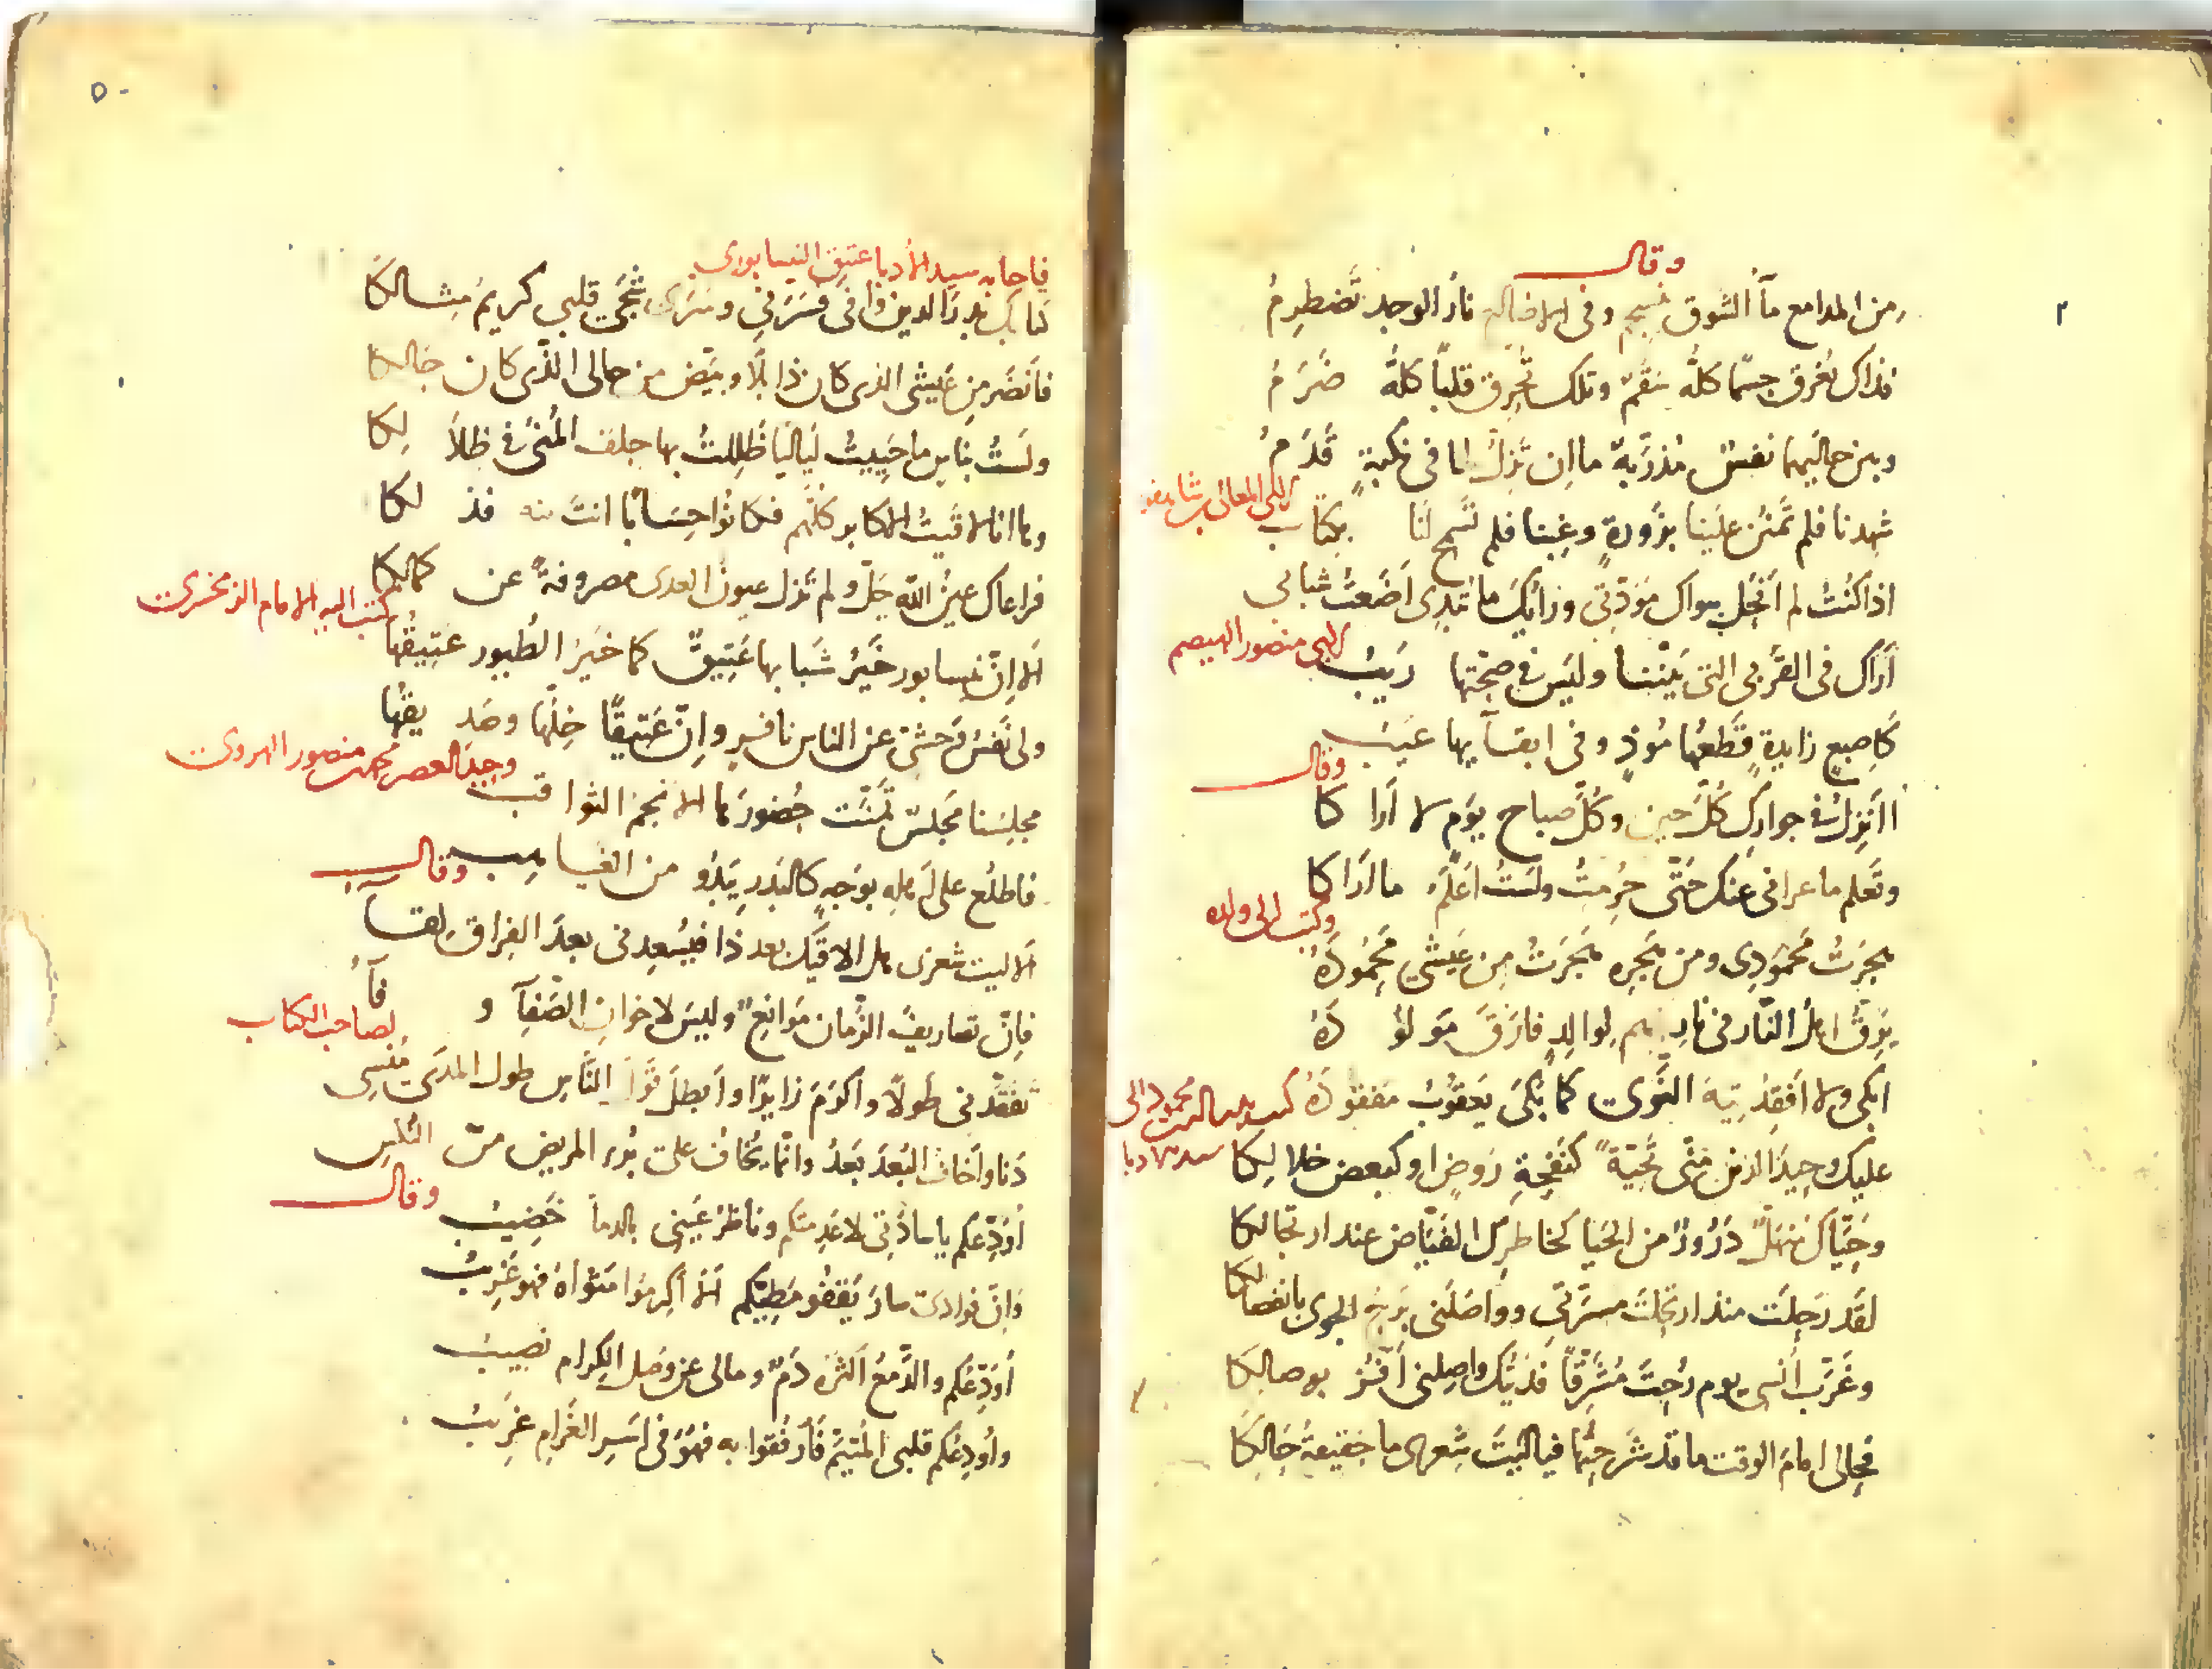 وقال
من المدامع ماء الشوق منسجم وفي الاضالع نار الوجد تضطرم
فذاك يُغرق جسمًا كلّه سَقَم وتلك تُحرِق قلبًا كلّه ضَرَمُ
وبين حاليهما نفسٌ مُذَرَّبة ما ان تزلّ لها في نكبةٍ قَدَمُ
لابي المعالي بن شاهفور
شهدنا فلم تَمنُن علينا بزَورةٍ وغِبنا فلم تَسمح لنا بكتاب
اذا كنتُ لم اَنحَل سواك مودّتي ورأيك ما تُبدي اَضَعتُ شبابي
لابي منصور الهيصم
اَراك في القربى التي بَيننا وليس في صحّتها ريبُ
كاصبعٍ زايدةٍ قطعُها مُوذٍ وفي ابقآيها عَيبُ
وقال
اانزل في جوارك كلّ حين وكلّ صباح يوم لا اَراكا
وتعلم ما عراني عنك حتّى حُرِمتُ ولستُ اَعلم ما اَراكا
وكتب الى ولده
هجرتُ محمودي ومن هجره هجرتُ من عيشي محمودَهُ
يرقّ اهل النار في نارهم لوالدٍ فارَقَ مولودَهُ
ابكي ولا افقد تيه النوى كما بكى يعقوب مفقودَهُ
محمود الى سيد الادبا
عليك وحيد الدين منّى تحيّة كنفحةِ روضٍ او كبعض خلالكا
وحيّاك مُنهلٌّ دَرُورٌ من الحيَا كخاطرك الفيّاض عند ارتجالكا
لقد رحلت منذ ارتحلتَ مسرّتي وواصلني برح الجوى بانفصالكا
وغرّب اُنسي يوم رُحتَ مُشَرِّقًا فدَيتُك واصِلني اَفُز بوصالكا
فحالي امام الوقت ما قد شرحتها فيا ليت شعري ما حقيقة حالكا
فاجابه سيد الادبا عتيق النيسابوري
كتابك بدر الدين وافى فسَرّني وسَرّى شجى قلبي كريمُ مثالكا
فانضر من عيشي الذي كان ذابلًا وبيّض من حالي الذي كان حالكا
ولستُ بناسٍ ما حييتُ لياليًا ظللتُ بها حلف المُنى في ظلالكا
وها انا لاقيتُ الاكابر كلّهم فكانوا حسابًا انت منه فذلكا
فراعاك عينُ الله جلّ ولم تزل عيون العدى مصروفةً عن كمالكا
كتب اليه الامام الزمخشري
الا انّ نيسابور خيرُ شبابها عتيقٌ كما خيرُ الطيور عتيقُها
ولي نفسُ وحشيّ عن الناس نافر وانّ عتيقًا خِلّها وصديقُها
وحيد العصر محمد بن منصور الهروي
مجلسنا مجلسٌ تمنّت حضورَها الانجم الثواقب
فاطلُع على اهله بوجهٍ كالبدر يبدُو من الغياهب
وقال
الا ليت شعري هل الاقيك بعد ذا فيُسعِدني بعدَ الفِراق لقآء
فانّ تصاريف الزمان موانع وليس لاخوان الصّفآء وفآءُ
لصاحب الكتاب
تفقّدني طَولًا واكرَمَ زايرًا وابطلَ قول النّاس طول المدى مُنسي
دنا واَخاف البُعد بَعدُ وانّما يُخاف على بُرء المريض من النُكسِ
وقال
اُوَدّعكم يا سادتي لا عَدِمتكم وناظر عيني بالدمآ خضيبُ
وانّ فوادي سار يقفُو مَطِيّكم الا اكرِموا مثواه فهو غريبُ
اُوَدِّعُكم والدّمعُ اكثرُه دَمٌ ومالي عن وصل الكرام نصيبُ
واُودِعُكم قلبي المُتيّم فارفُقوا به فهو في اسر الغرام غريبُ